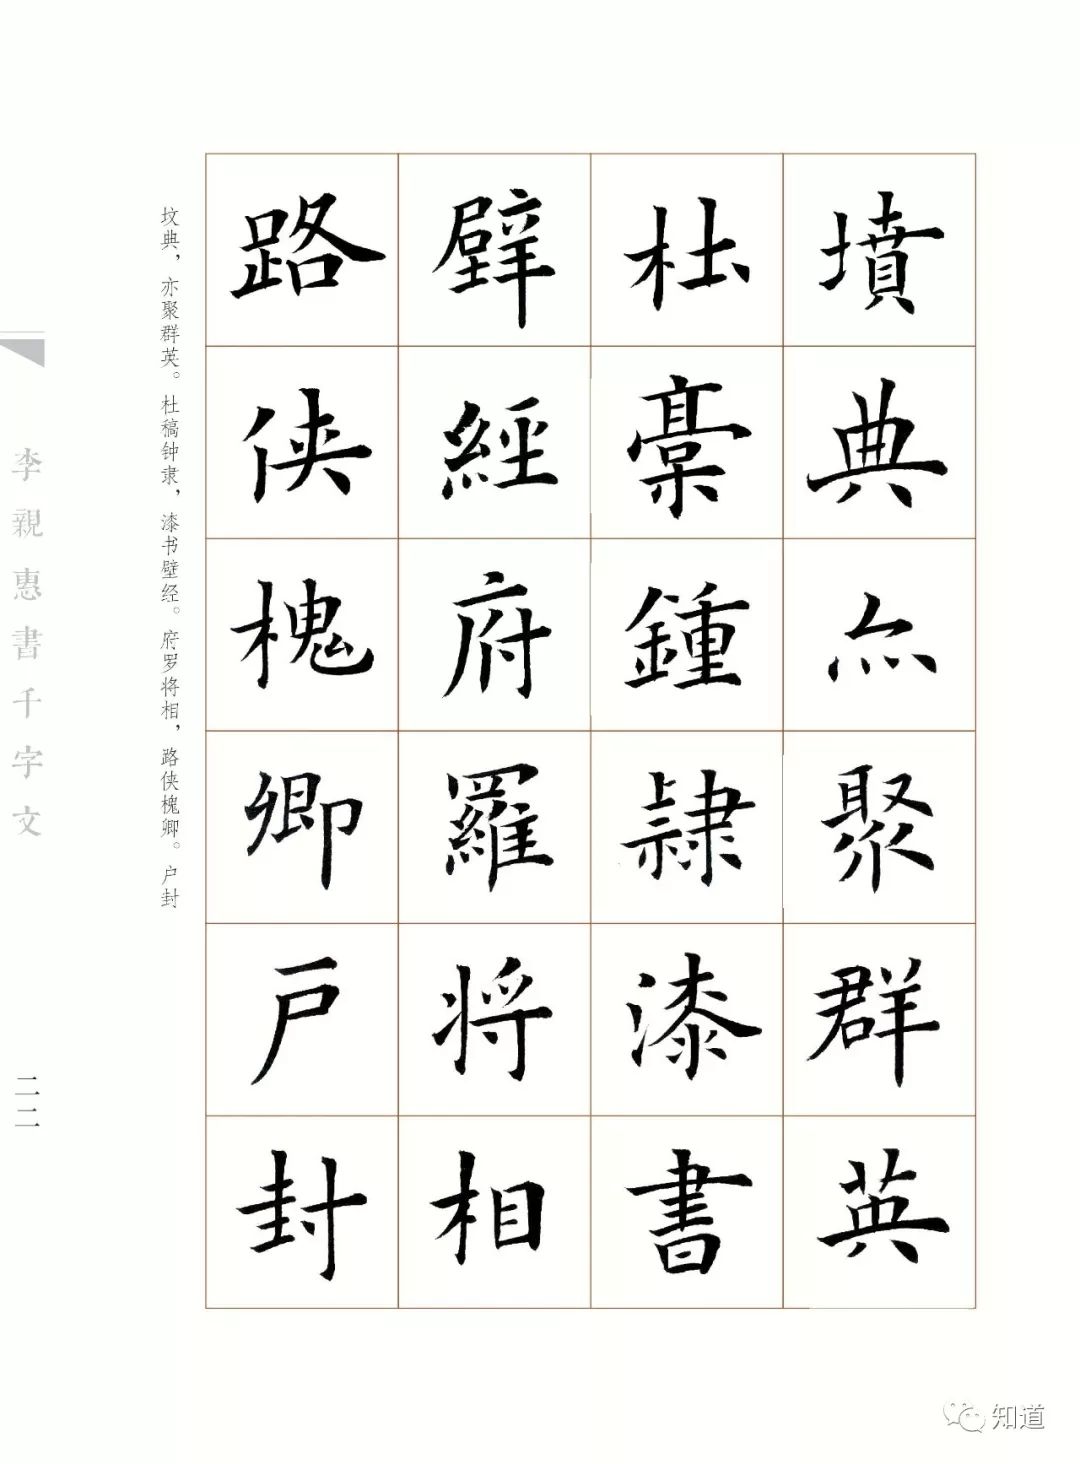 墳典亦聚群英
杜稾鍾隸漆書
壁經府羅將相
路俠槐卿戶封
坟典，亦聚群英。杜稿钟隶，漆书壁经。府罗将相，路侠槐卿。户封
李親惠書千字文
二二
知道